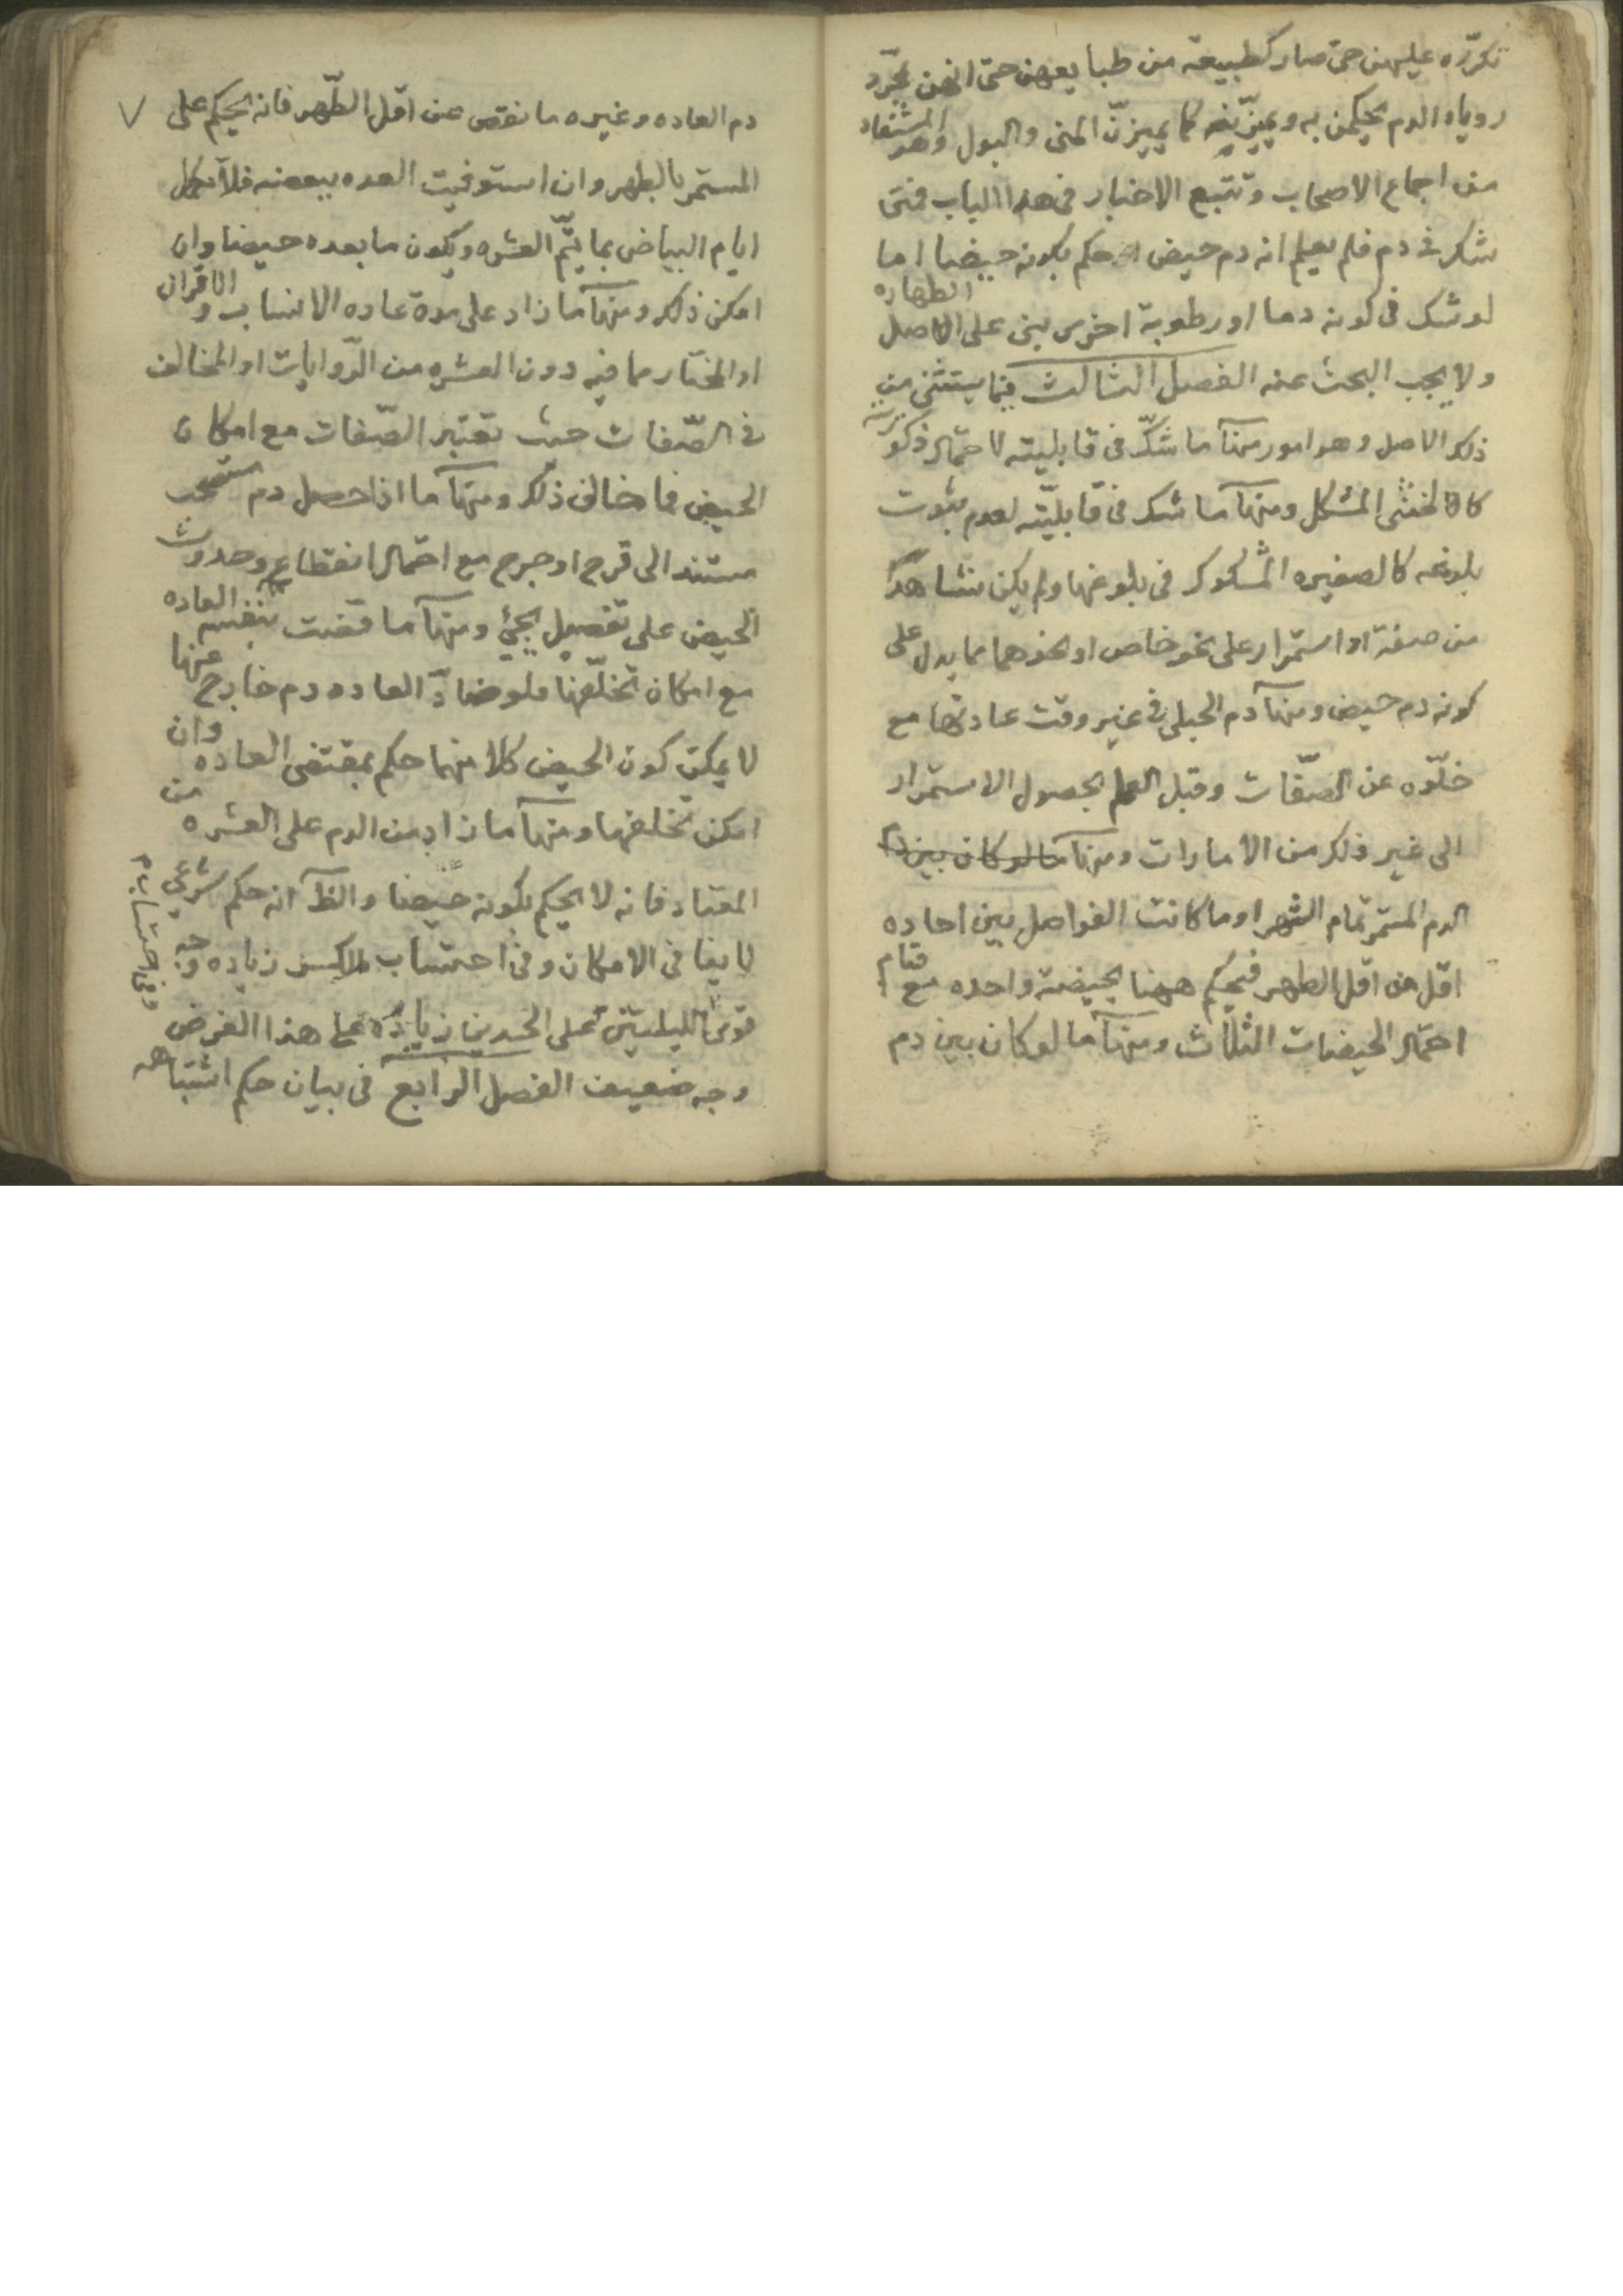 تكرّره عليهن حتى صار كطبيعة من طبايعهن حتى انهن بمجرّد
روياه الدم يحكمن به ويميزنه كما يميزنّ المنى والبول وهو المستفاد
من اجماع الاصحاب وتتبع الاخبار فى هذا الباب فمتى
شكر فى دم فلم يعلم انه دم حيض حكم بكونه حيضا اما
لو شك فى كونه دما او رطوبة اخرى بنى على الاصل الطهاره
ولا يجب البحث عنه الفصل الثالث فيما يستثنى من
ذلك الاصل وهو امور منها ما شكّ فى قابليته لاحتمال ذكوريته
كالخنثى المشكل ومنها ما شك فى قابليّته لعدم ثبوت
بلوغه كالصغيره المشكوك فى بلوغها ولم يكن شاهد
من صفة او استمرار على نحو خاص او نحوهما مما يدل على
كونه دم حيض ومنها دم الحبلى فى غير وقت عادتها مع
خلّوه عن الصّفات وقبل العلم بحصول الاستمرار
الى غير ذلك من الامارات ومنها ما لو كان بين
الدم المستمر تمام الشهر او ما كانت الفواصل بين احاده
اقل من اقل الطهر فيحكم ههنا بحيضة واحده مع قيام
احتمال الحيضات الثلاث ومنها ما لو كان بين دم
دم العاده وغيره ما نقص عن اقل الطّهر فانه يحكم على
المستمر بالطهر وان استوفيت العده ببعضه فلا تكمل
ايام البياض بما يتمّ العشره ويكون ما بعده حيضا وان
امكن ذلك ومنها ما زاد على مدة عاده الانساب والاقران
او المختار مما فيه دون العشره من الرّوايات او المخالف
فى الصّفات حيث تعتبر الصّفات مع امكان
الحيض فما خالف ذلك ومنها ما اذا حصل دم
مستند الى قرح او جرح مع احتمال انقطاعه وحدوث
الحيض على تفصيل يجئ ومنها ما قضت بنفيه العاده
مع امكان تخلّفها فلو ضادّ العاده دم خارج عنها
لا يمكن كون الحيض كلا منهما حكم بمقتضى العاده وان
امكن تخلفها ومنها ما زاد من الدم على العشره من
المعتاد فانه لا يحكم بكونه حيضا والظ انه حكم شرعى
لا ينافى الامكان وفى احتساب الكسر زياده وجه
قوى الليلتين على الحدين زياده على هذا الفرض
وفى احتساب
وجه ضعيف الفصل الرابع فى بيان حكم اشتباهه